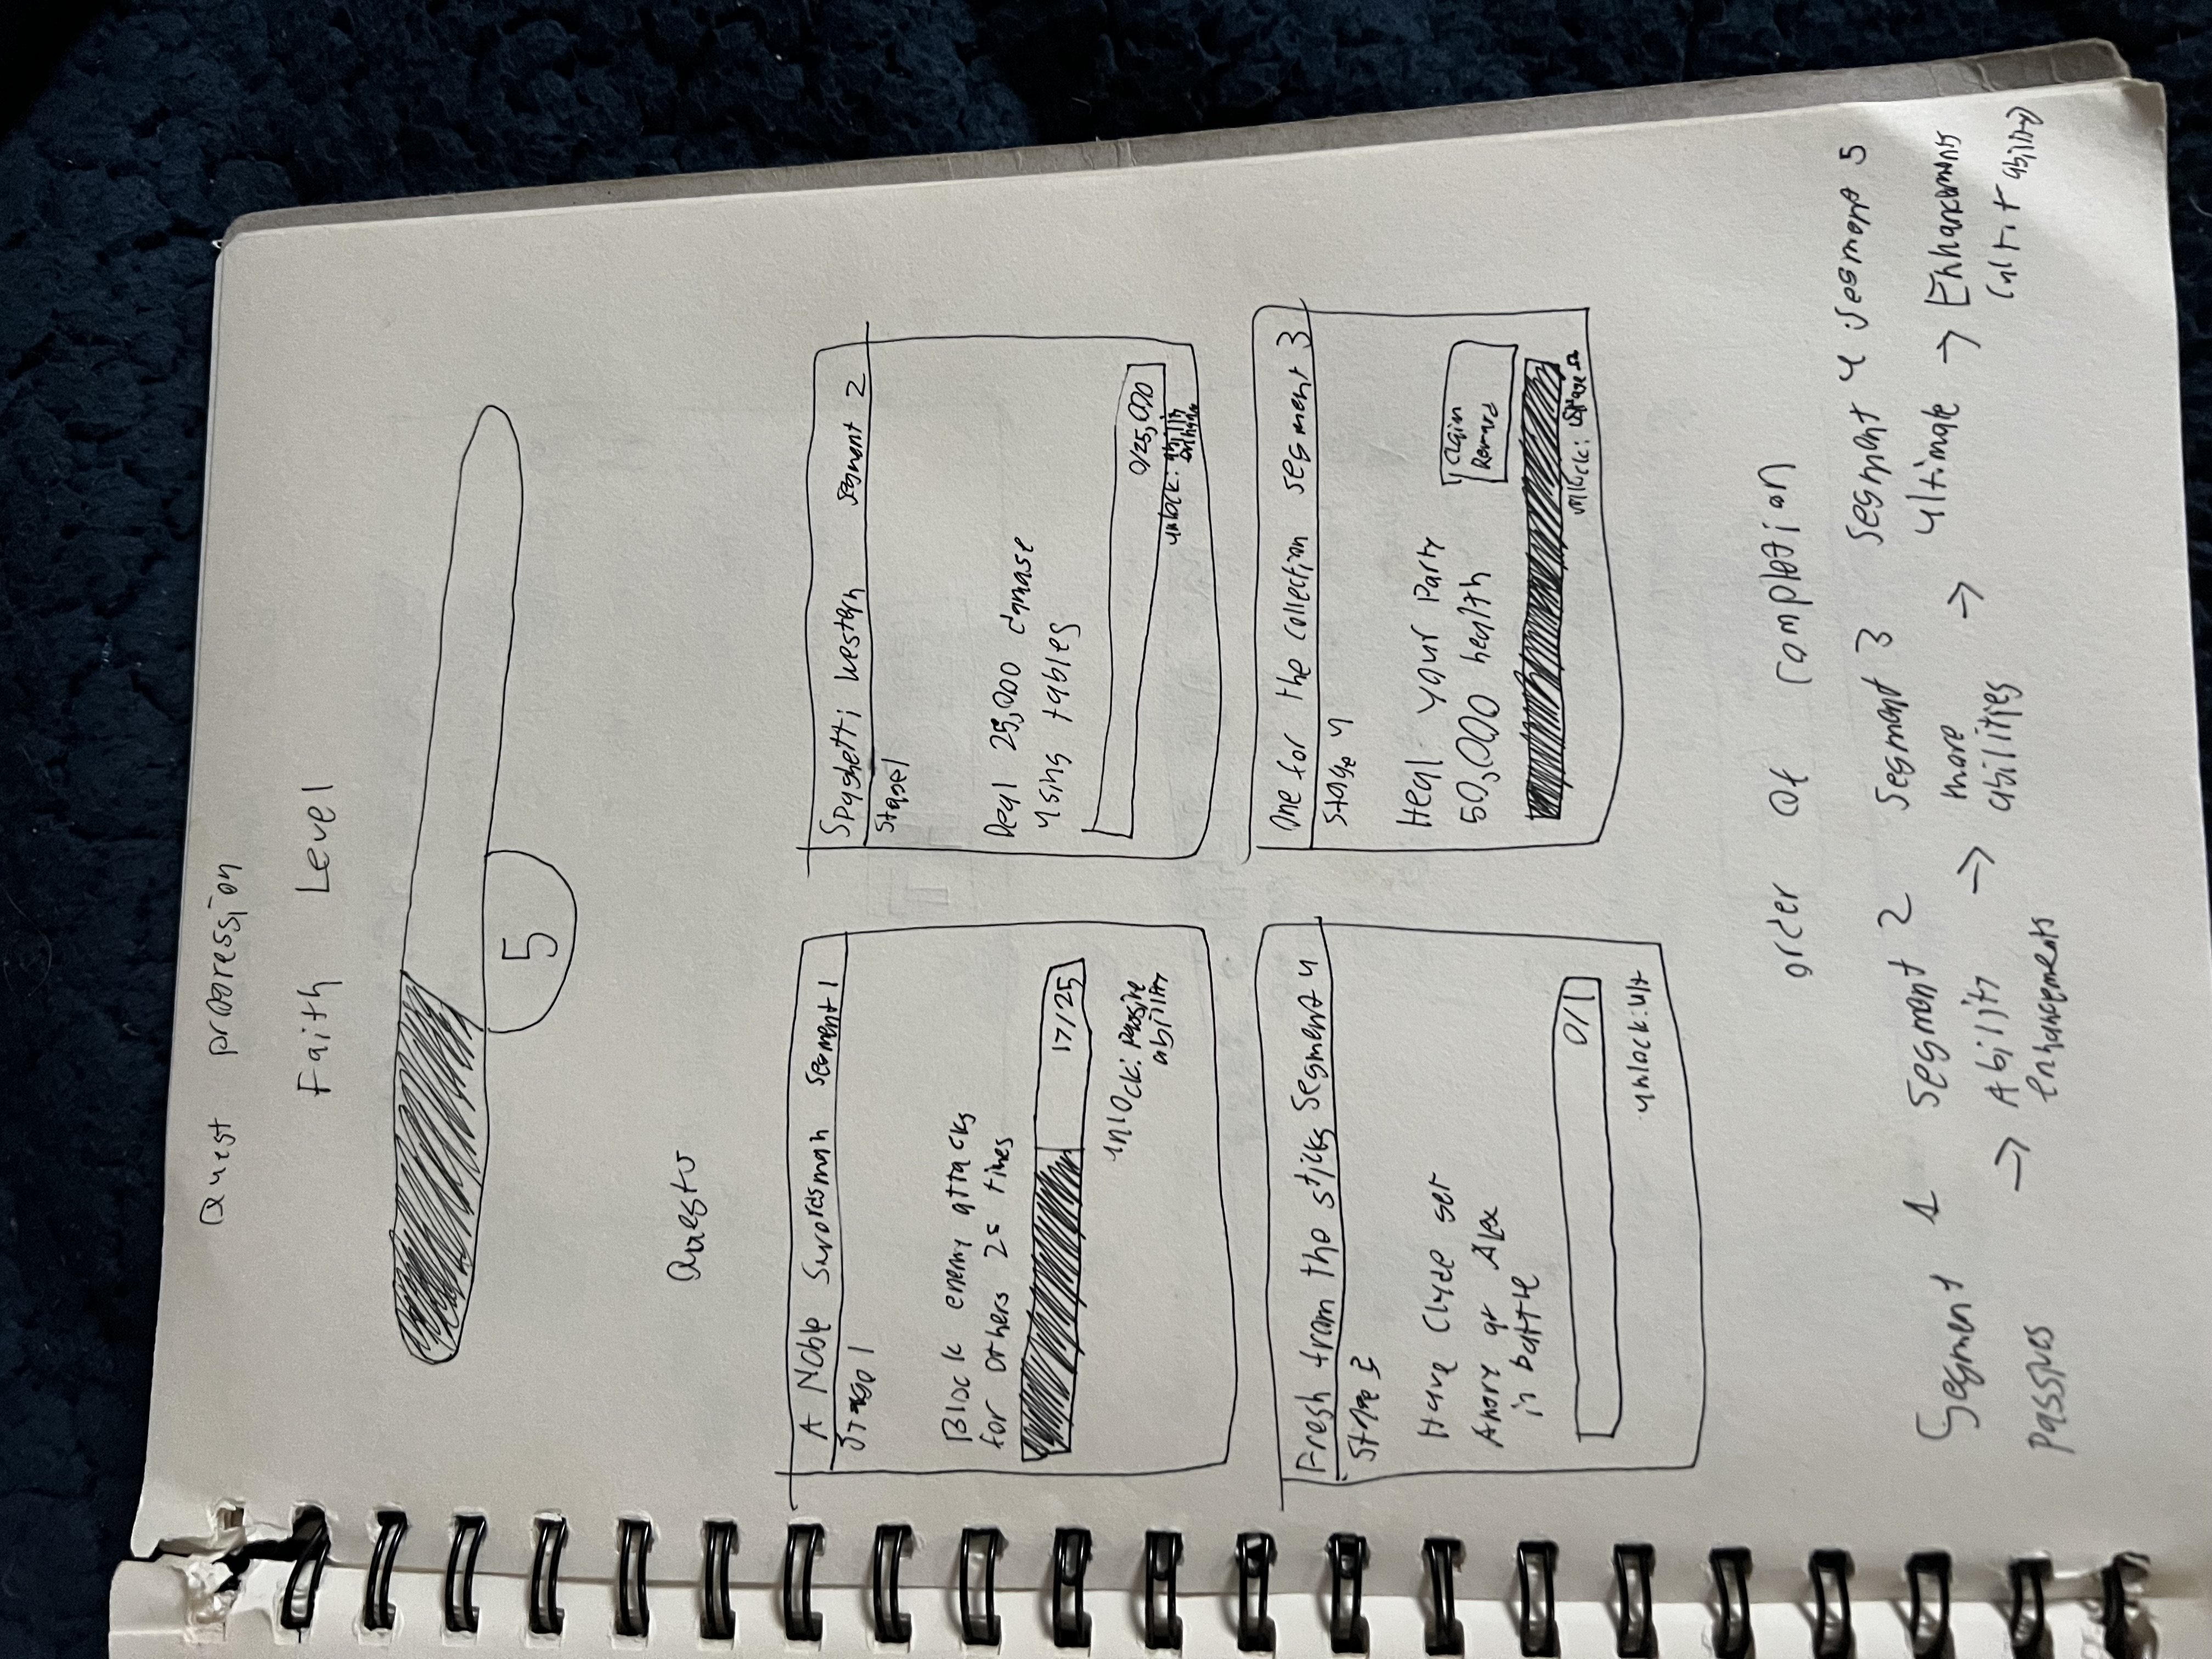 Quest progression
Faith Level
5
Quests
A Noble Swordsman Segment 1
Stage 1
Block enemy attacks
for others 25 times
17/25
unlock: passive
ability
Spaghetti Western Segment 2
Stage 1
Deal 25,000 damage
using tables
0/25,000
unlock: ability
Fresh from the sticks Segment 4
Stage 3
Have Clyde get
Angry at Alex
in battle
0/1
unlock: ult
One for the collection Segment 3
Stage 4
Heal your Party
50,000 health
Claim
Reward
unlock:
order of completion
Segment 1 Segment 2 Segment 3 Segment 4 Segment 5
passives → Ability enhancements → more abilities → ultimate → Enhancements
(ult + abilities)